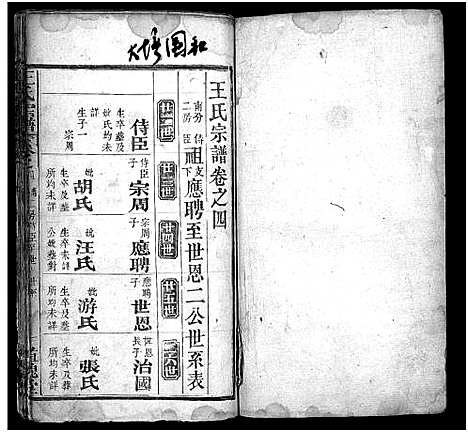 王氏宗譜卷之四
南分二房侍臣祖支下應聘至世恩二公世系表
廿二世
廿三世
廿四世
廿五世
廿六世
侍臣
生卒葬及妣氏均未詳
生子一
宗周
侍臣子
宗周
生卒及葬所均未詳
妣胡氏
宗周子
應聘
生卒未詳
公妣葬對
妣汪氏
應聘子
世恩
生卒及葬所均未詳
妣游氏
世恩長子
治國
生卒及葬所均未詳
妣張氏